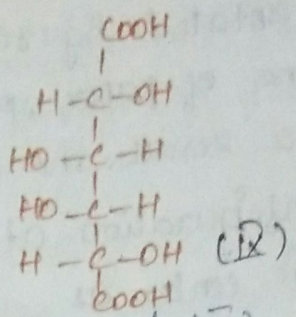 COOH
H-C-OH
HO-C-H
HO-C-H
H-C-OH (IX)
COOH